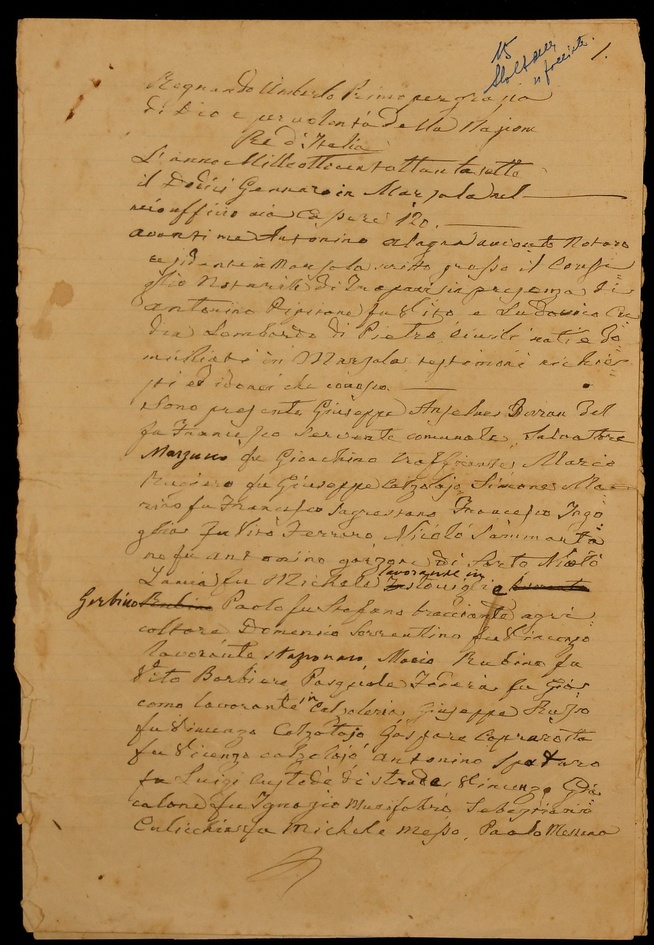 1.
Regnando Umberto Primo per grazia
di Dio e per volontà della Nazione
Re d'Italia
L'anno Milleottocentottantasette
il Dodici Gennaro in Marsala nel
mio ufficio via Capure 120.
avanti me Antonino Notaro
residente in Marsala scritto presso il Consi
glio Notarile di Trapani in presenza di
Antonino Pipitone fu Vito e Ludovico
Lombardo di Pietro, civili nati e do
miciliati in Marsala testimoni richie
sti ed idonei che conosco.
Sono presenti Giuseppe Anselmo
fu Francesco servente comunale, Salvatore
Marzucco fu Gioachino trafficante, Marco
Ruggero fu Giuseppe Calzolajo, Simone Ma
rino fu Francesco sagrestano, Francesco Ingo
glia fu Vito Ferraro, Nicolò Sammarta
no fu Antonino garzone di Sarto, Nicolò
Lania fu Michele lavorante in e lavorante
Gerbino Rubino Paolo fu Stefano bracciante agri
coltore, Domenico Sorrentino fu Vincenzo
lavorante stagnaro, Mario Rubino fu
Vito Barbiere, Pasquale fu Gia
como lavorante in Calzoleria, Giuseppe Russo
fu Vincenzo Calzolajo, Gaspare Coprarotta
fu Vicenzo calzolajo, Antonino Spataro
fu Luigi custode di strade, Vincenzo Gia
calone fu Ignazio Murifabro, Sebastiano
Culicchia fu Michele Messo, Paolo Messina